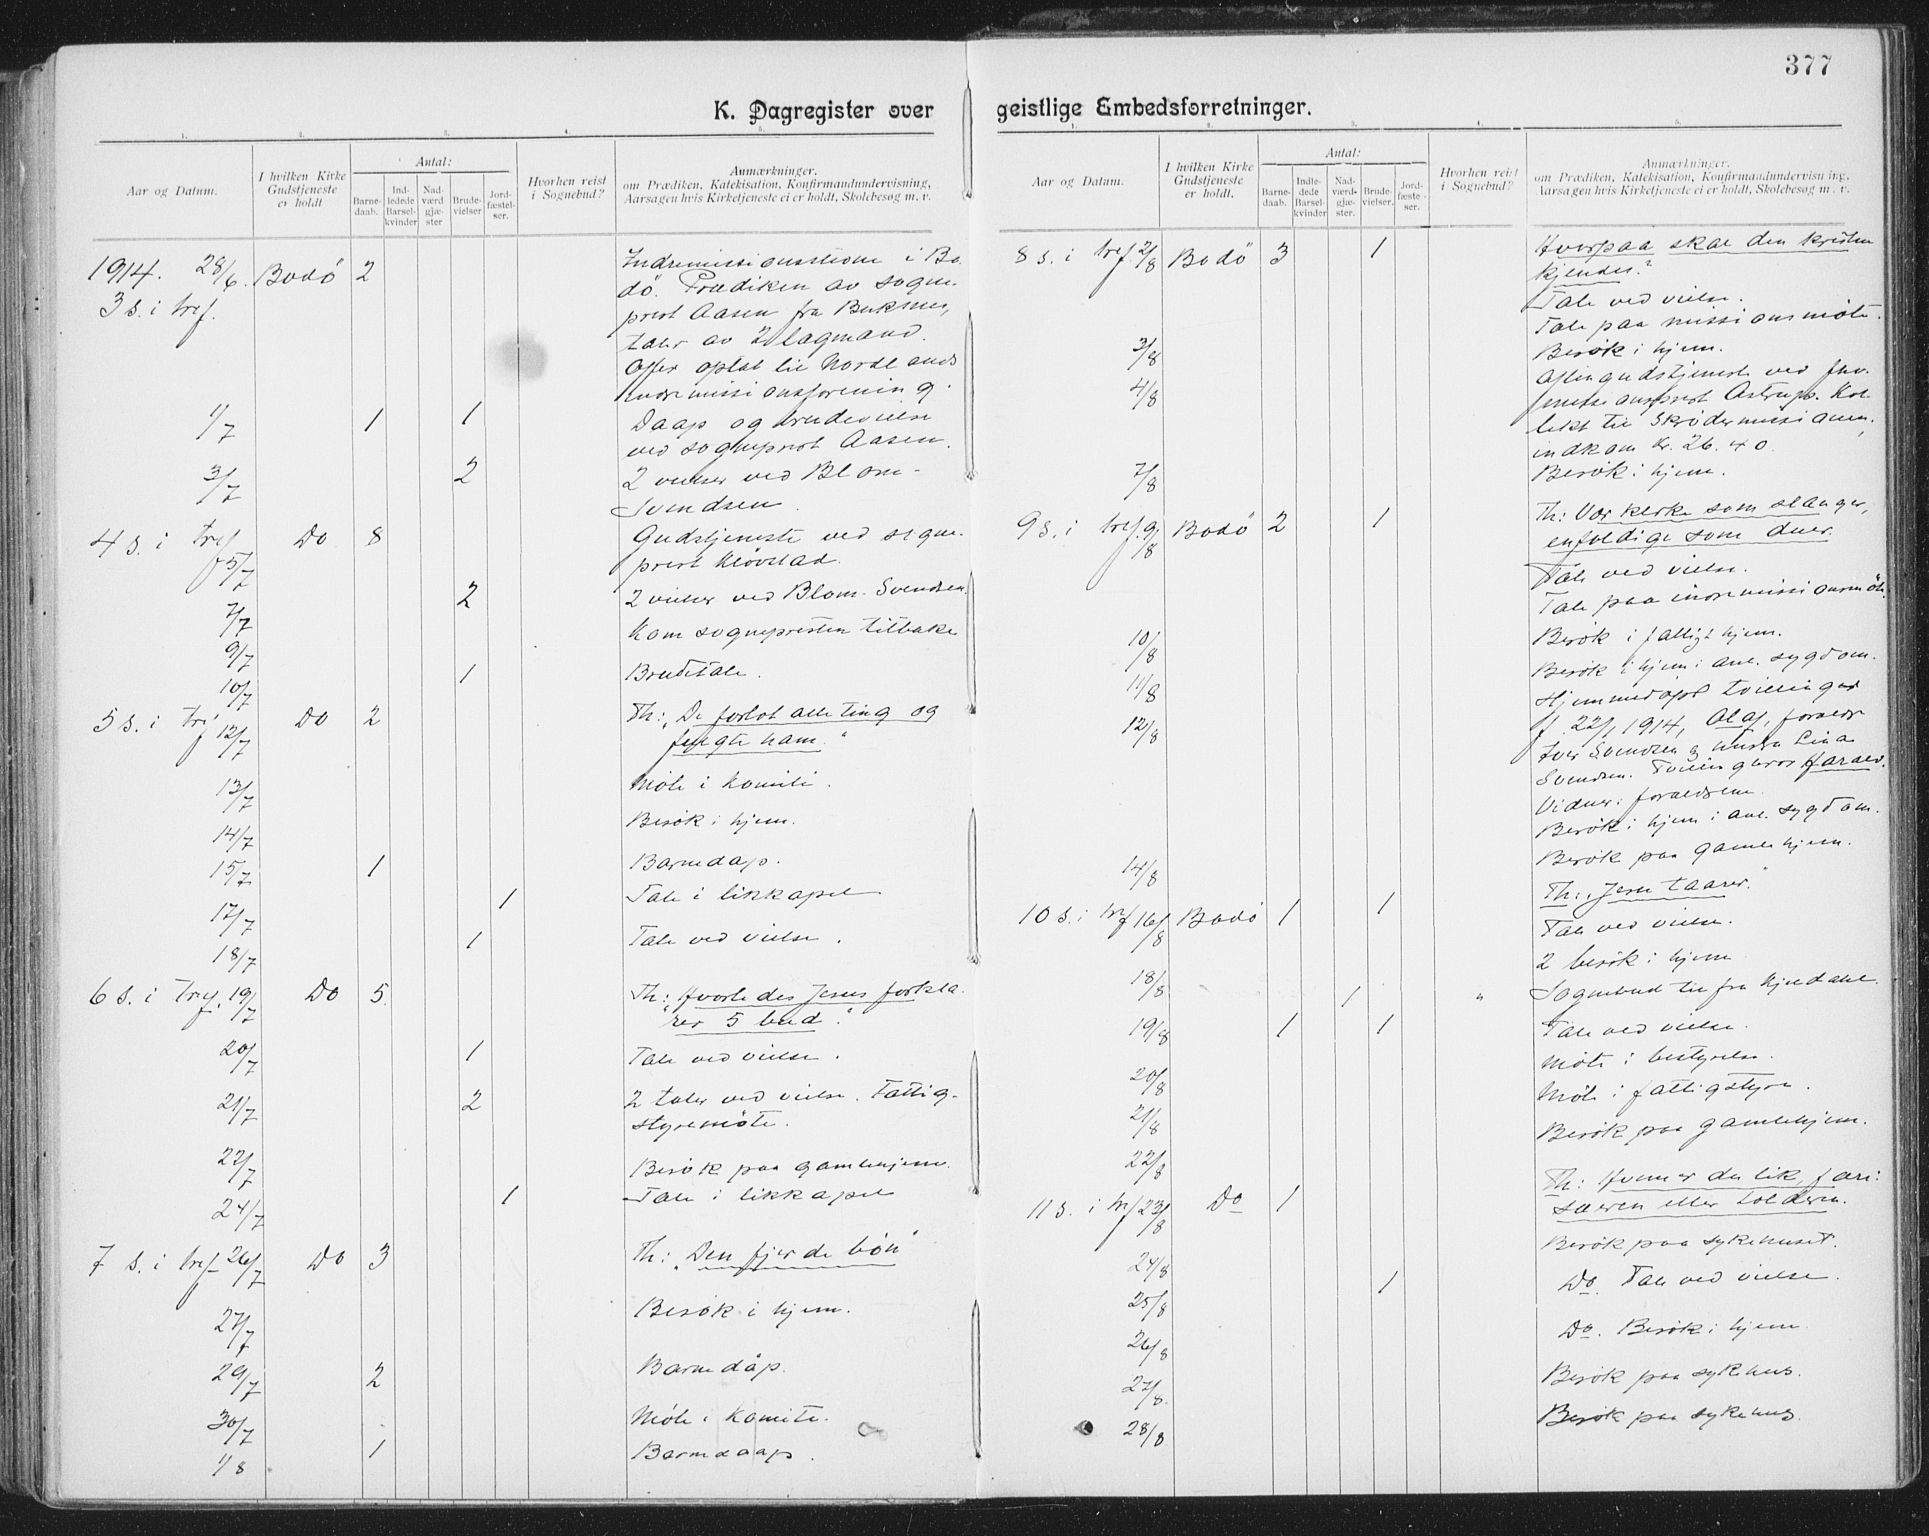 377
K. Dagregister over geistlige Embedsforretninger.
1. 2. 3. 4. 5.
Aar og Datum.
I hvilken Kirke Gudstjeneste er holdt
Antal:
Barnedaab.
Indledede Barselkvinder
Nadværdgjæster
Brudevielser
Jordfæstelser.
Hvorhen reist i Sognebud?
Anmærkninger.
om Prædiken, Katekisation, Konfirmandundervisning,
Aarsagen hvis Kirketjeneste ei er holdt, Skolebesøg m. v.
1914. 28/6. Bodö 2 Indremissionsstevne i Bo
3 s. i tref. dö. Prædiken av sogne-
prest Aasen fra Buksnes,
taler av 2 lægmænd.
Offer optat til Nordlands
indremissionsforening.
1/7 1 1 Daap og brudevielse
ved sogneprest Aasen.
3/7 2 2 vielser ved Blom-
Svendsen.
4 s. i tref 5/7 Do 8 Gudstjeneste ved sogne-
prest Kløvstad.
7/7 2 2 vielser ved Blom-Svendsen.
9/7 Kom sognepresten tilbake
10/7 1 Brudetale.
5 s. i tref 12/7 Do 2 Th: "De forlot alle ting og
fulgte ham."
13/7 Møte i Komite.
14/7 Besøk i hjem.
15/7 1 Barnedaap.
17/7 1 Tale i likkapel
18/7 1 Tale ved vielse.
6 s. i tref. 19/7 Do 5 Th: "Hvorledes Jesus forkla-
rer 5 bud."
20/7 1 Tale ved vielse.
21/7 2 2 taler ved vielse. Fattig-
styremöte.
22/7 Besøk paa gamlehjem.
24/7 1 Tale i likkapel
7 s. i tref 26/7 Do 3 Th: "Den fjerde bøn"
27/7 Besøk i hjem.
29/7 2 Barnedåp.
30/7 Møte i Komite.
1/8 1 Barnedaap.
1. 2. 3. 4. 5.
Aar og Datum.
I hvilken Kirke Gudstjeneste er holdt.
Antal:
Barnedaab.
Indledede Barselkvinder
Nadværdgjæster.
Brudevielser.
Jordfæstelser.
Hvorhen reist i Sognebud?
Anmærkninger.
om Prædiken, Katekisation, Konfirmandundervisning,
Aarsagen hvis Kirketjeneste ei er holdt, Skolebesøg m. v.
8 s. i tref 2/8 Bodö 3 1 Hvorpaa skal den kristne
kjendes?
Tale ved vielse.
Tale paa missionsmöte.
3/8 Besøk i hjem.
4/8 Aftengudstjeneste ved
missionsprest Astrup. Kol
lekt til Skrødermissionen,
indkom Kr. 26.40.
7/8 Besøk i hjem.
9 s. i tref. 9/8 Bodö 2 1 Th: Vær kloke som slanger,
enfoldige som duer.
Tale ved vielse.
Tale paa indremissionsmöte.
10/8 Besøk i fattigt hjem.
11/8 Besøk i hjem i anl. sygdom.
12/8 Hjemmedøpt tvillinger
f. 22/1 1914, Olaf, foreldre
Iver Svendsen og hustru Lina
Svendsen. Harald.
Vidner: foreldrene.
Besøk i hjem i anl. sygdom.
14/8 Besøk paa gamlehjem.
10 s. i tref 16/8 Bodö 1 1 Th: "Jesu taarer."
Tale ved vielse.
18/8 2 besøk i hjem
1 " Sognebud
19/8 1 1 Tale ved vielse.
20/8 Møte i bestyrelse.
21/8 Møte i fattigstyre.
22/8 Besøk paa gamlehjem.
11 s. i tref 23/8 Do 1 Th: Hvem er du lik, fari-
sæeren eller tolderen.
24/8 Besøk paa sykehuset.
25/8 1 Do. Tale ved vielse.
26/8 Do. Besøk i hjem.
27/8. Besøk paa sykehus.
28/8 Besøk paa sykehus.